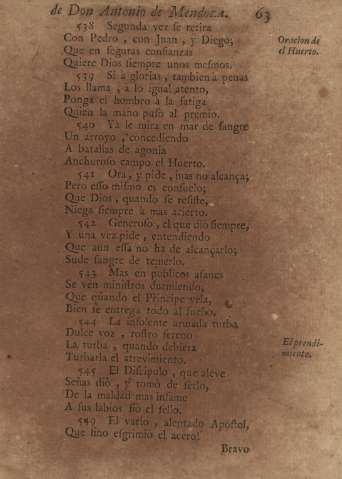 de Don Antonio de Mendoza. 63
538 Segunda vez se retira
Con Pedro, con Juan, y Diego;
Que en seguras confianzas
Quiere Dios siempre unos mesmos.
Oracion de
el Huerto.
539 Si a glorias, tambien à penas
Los llama, a lo igual atento,
Ponga el hombro à la fatiga
Quien la mano puso al premio.
540 Yà le mira en mar de sangre
Un arroyo, concediendo
A batallas de agonia
Anchuroso campo el Huerto.
541 Ora, y pide, mas no alcança;
Pero esso mismo es consuelo;
Que Dios, quando se resiste,
Niega siempre à mas acierto.
542 Generoso, el que diò siempre,
Y una vez pide, entendiendo
Que aun essa no ha de alcançarlo;
Sude sangre de temerlo.
543 Mas en publicos afanes
Se ven ministros durmiendo,
Que quando el Principe vela,
Bien se entrega todo al sueño.
544 La insolente armada turba
Dulce voz, rostro sereno
La turba, quando debiera
Turbarla el atrevimiento.
El prendi-
miento.
545 El Discipulo, que aleve
Señas diò, y tomò de serlo,
De la maldad mas infame
A sus labios fio el sello.
549 El vario, alentado Apostol,
Que fino esgrimiò el acero!
Bravo